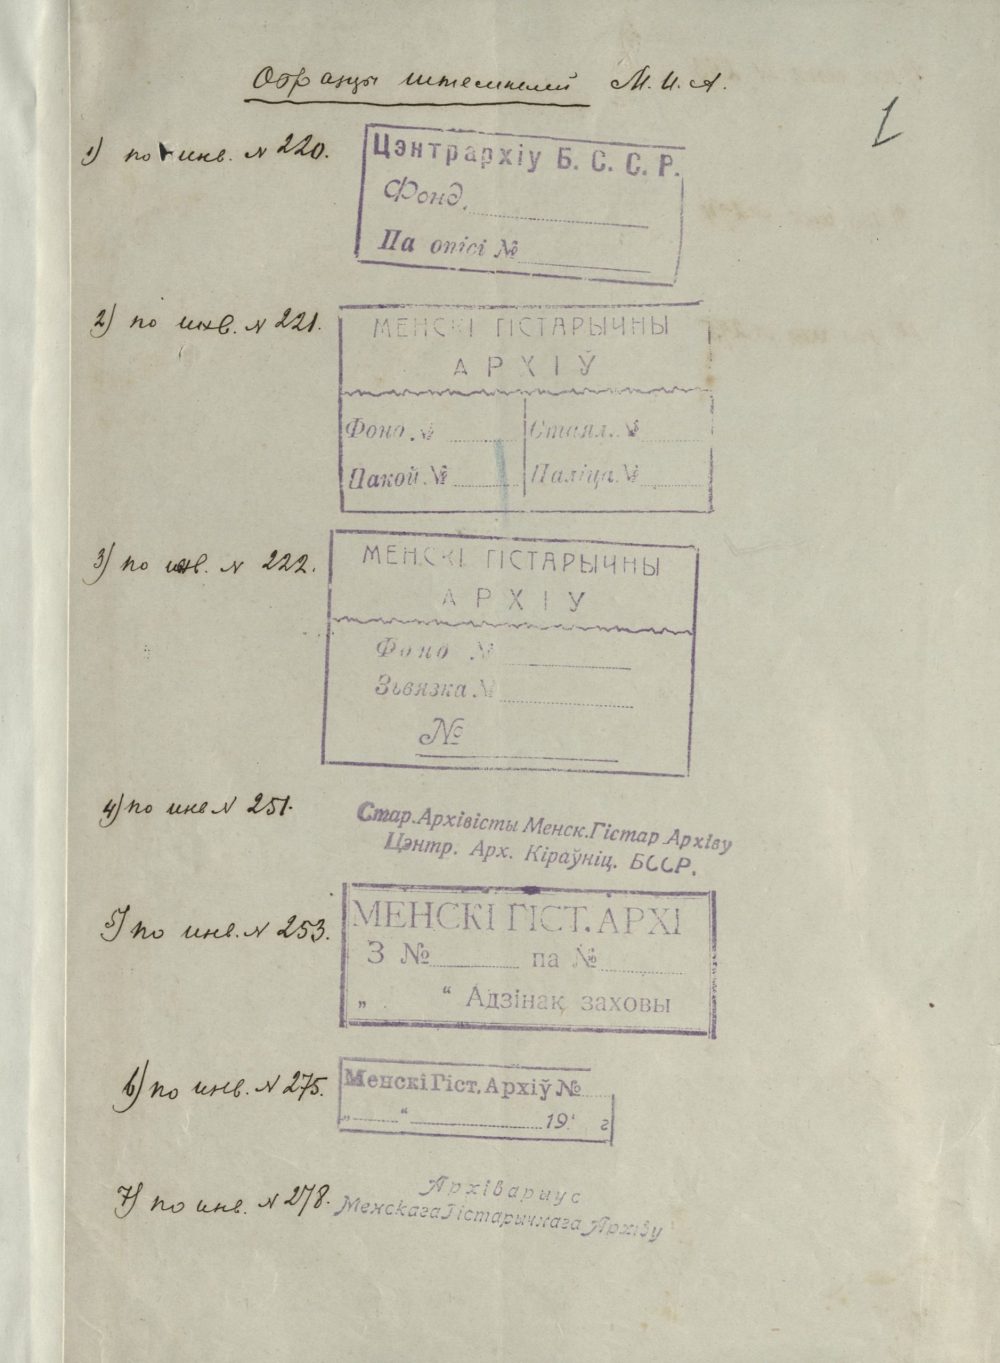 Образцы штемпелей М.И.А.
1
1) по инв. № 220.
Цэнтрархіу Б. С. С. Р.
Фонд.
Па опісі №
2) по инв. № 221.
МЕНСКІ ГІСТАРЫЧНЫ
АРХІЎ
Фонд. № Стаял. №
Пакой. № Паліца. №
3) по инв. № 222.
МЕНСКІ ГІСТАРЫЧНЫ
АРХІУ
Фонд №
Зьвязка №
№
4) по инв № 251.
Стар. Архівісты Менск. Гістар Архіву
Цэнтр. Арх. Кіраўніц. БССР.
5) по инв. № 253.
МЕНСКІ ГІСТ. АРХІ
З № па №
„ “ Адзінак заховы
6) по инв. № 275.
Менскі Гіст. Архіў №
„ “ 19 г
7) по инв. № 278.
Архівариус
Менскага Гістарычнага Архіву